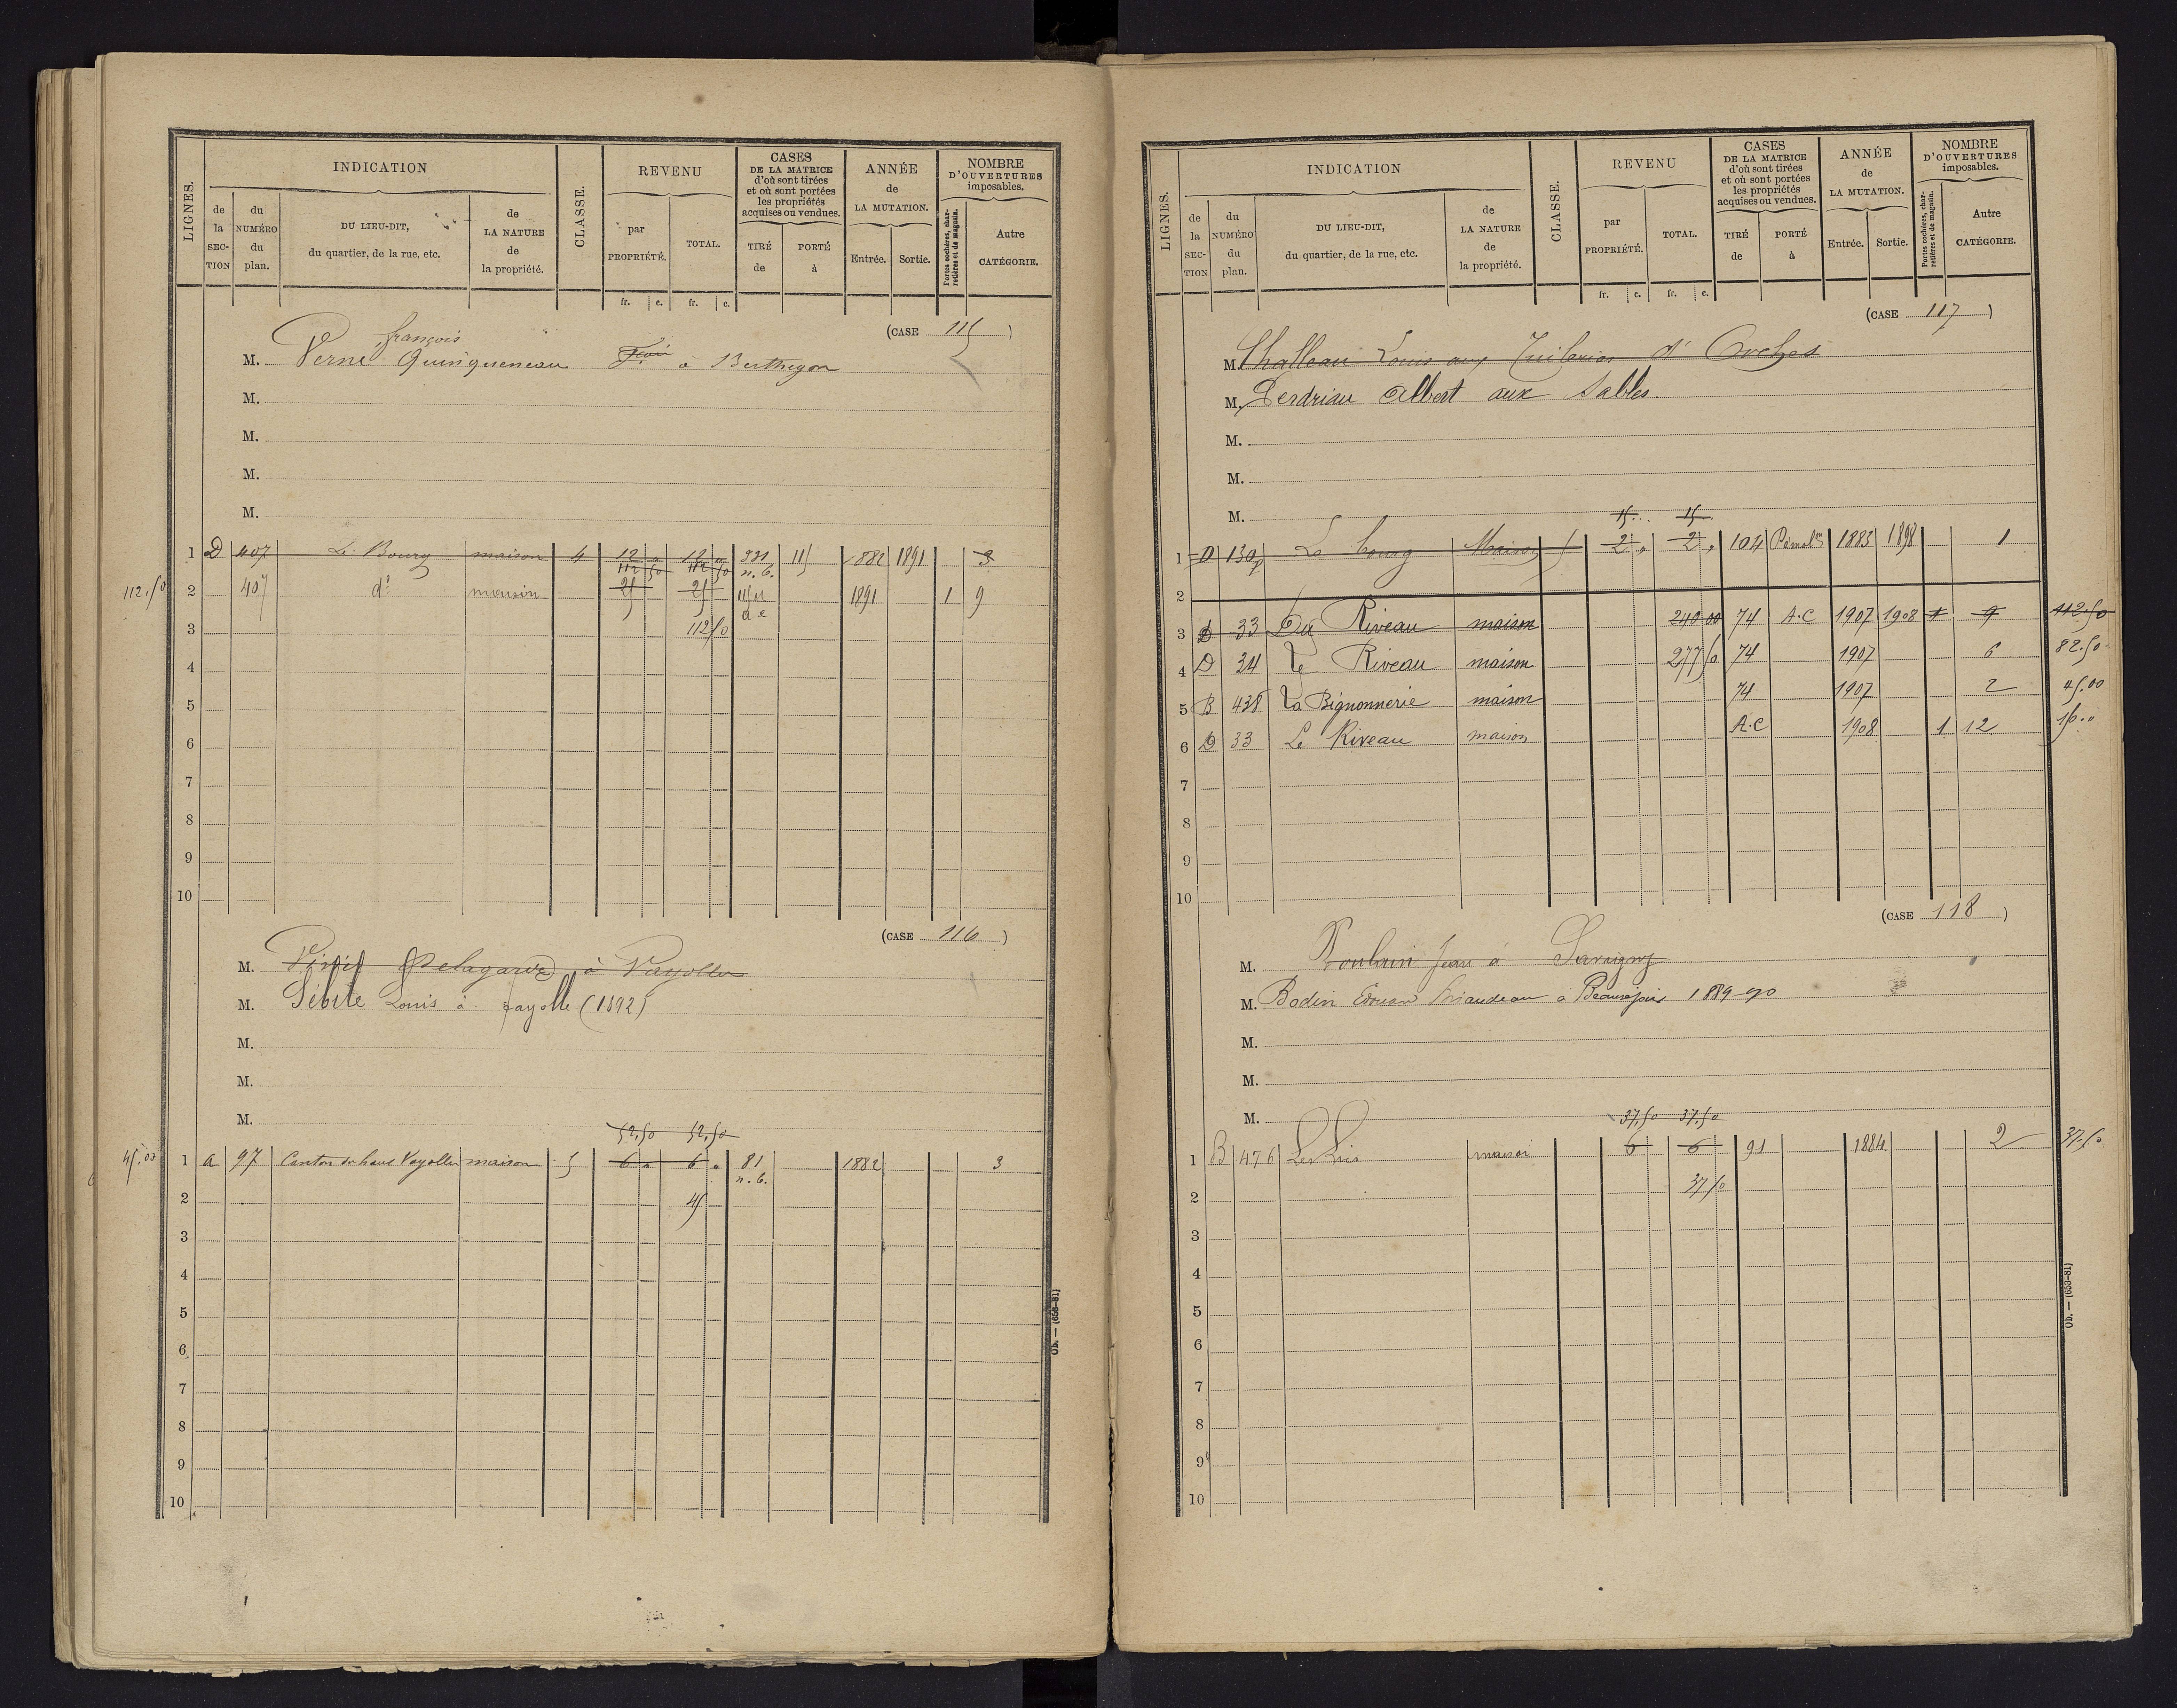 LIGNES. INDICATION CLASSE. REVENU CASES DE LA MATRICE d'où sont tirées et où sont portées les propriétés acquises ou vendues. ANNÉE de LA MUTATION. NOMBRE D'OUVERTURES imposables.
de la SECTION du NUMÉRO du plan. DU LIEU-DIT, du quartier, de la rue, etc. de LA NATURE de la propriété. par PROPRIÉTÉ. TOTAL. TIRÉ de PORTÉ à Entrée. Sortie. Portes cochères, charretières et de magasin. Autre CATÉGORIE.
fr. c. fr. c.
(CASE 115)
françois
M. Verne Quinqueneau à Berthegon
M.
M.
M.
M.
1 D 407 Le Bourg maison 4 12 " 12 " 331 115 1882 1891 3
112 50 112 50 n. b.
112.50 2 407 d° maison 25 25 115 1891 1 9
3 112 50
4
5
6
7
8
9
10
(CASE 116)
M. Delagarde à Vayolles
M. Débite Louis à fayolle (1892)
M.
M.
M.
52.50 52.50
45.00 1 a 97 Canton du haut Vayolles maison 5 6 " 6 " 81 1882 3
n. b.
2 45
3
4
5
6
7
8
9
10
Ub. — (653-81)
LIGNES. INDICATION CLASSE. REVENU CASES DE LA MATRICE d'où sont tirées et où sont portées les propriétés acquises ou vendues. ANNÉE de LA MUTATION. NOMBRE D'OUVERTURES imposables.
de la SECTION du NUMÉRO du plan. DU LIEU-DIT, du quartier, de la rue, etc. de LA NATURE de la propriété. par PROPRIÉTÉ. TOTAL. TIRÉ de PORTÉ à Entrée. Sortie. Portes cochères, charretières et de magasin. Autre CATÉGORIE.
fr. c. fr. c.
(CASE 117)
M. Challeau Louis aux Tuileries d'Orches
M. Perdriau Albert aux Sables.
M.
M.
M.
15 15
1 D 130p Le bourg Maison 5 2 " 2 " 104 Démol.on 1883 1898 1
2
3 D 33 Du Riveau maison 240 00 74 A.C 1907 1908 1 9 112.50
4 D 34 Le Riveau maison 277 50 74 1907 6 82.50
5 B 438 La Bignonnerie maison 74 1907 2 45.00
6 D 33 Le Riveau maison A.C 1908 1 12
7
8
9
10
(CASE 118)
M. Poulain Jean à Savigny
M. Bodin à Beaurepais 1889-90
M.
M.
M.
37.50 37.50
1 B 476 maison 6 6 91 1884 2 37.50
2 37 50
3
4
5
6
7
8
9
10
Ub. — (653-81)